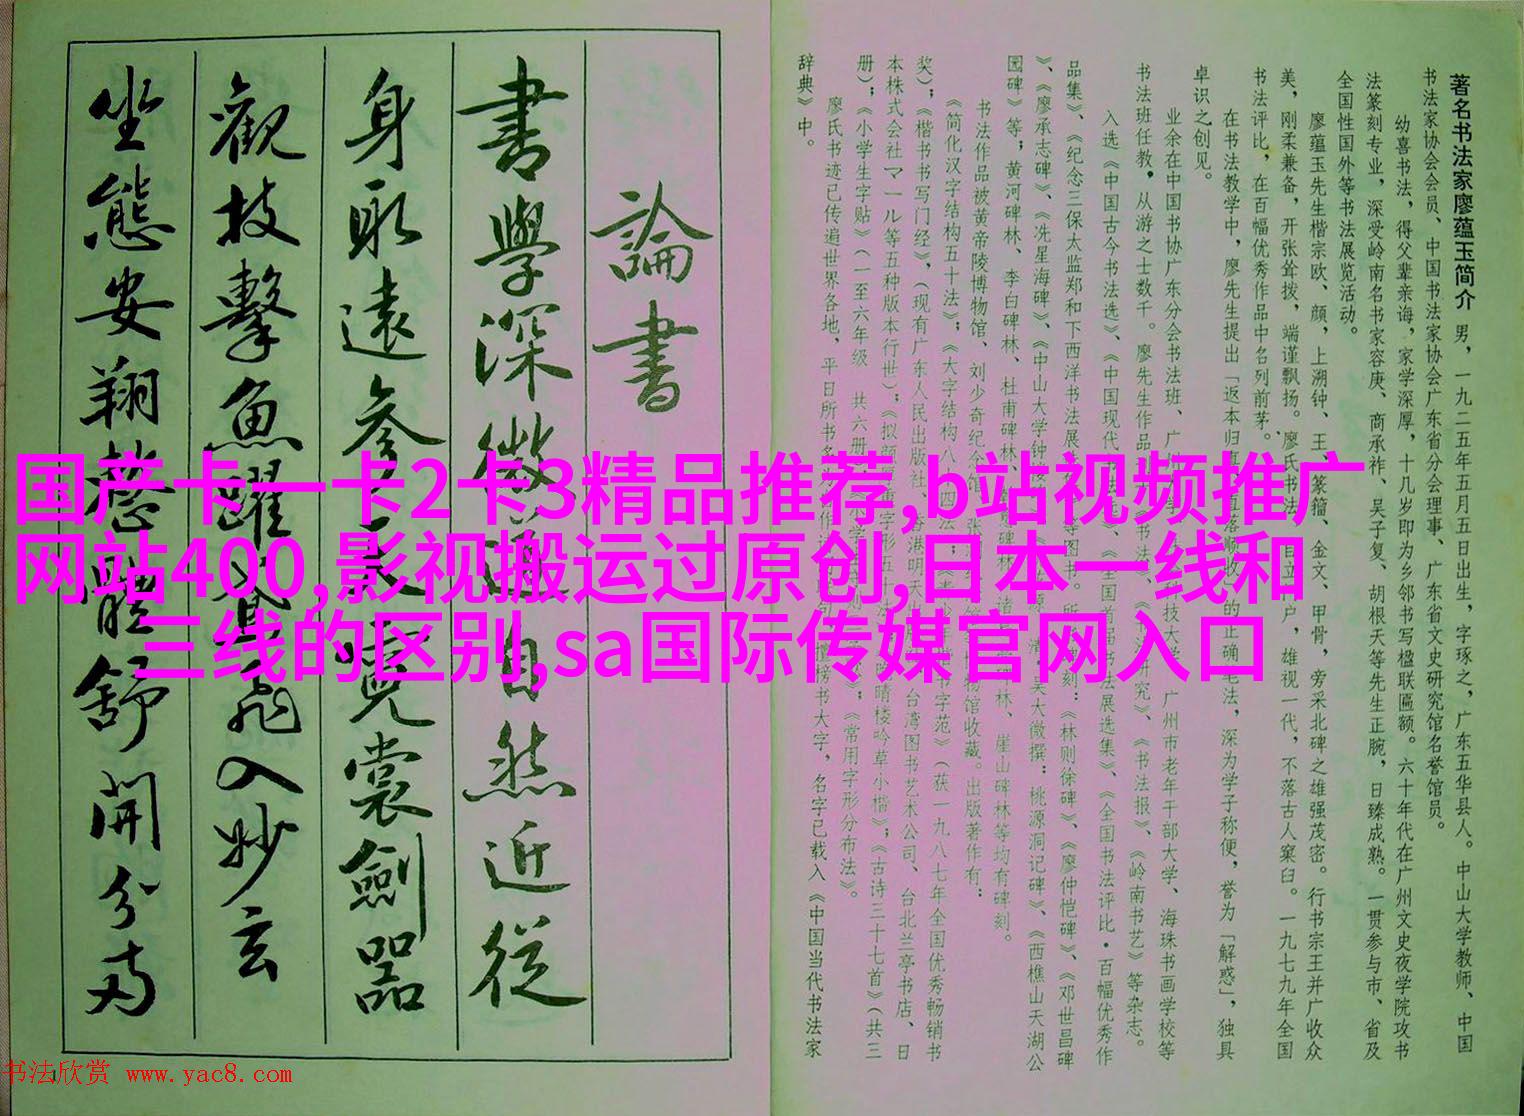 論書
書學深微通自然近從
身取遠參
裳劍器
觀技擊魚躍鳶飛入妙玄
坐態安翔
體舒開分布
著名书法家廖蕴玉简介
男，一九二五年五月五日出生，字琢之，广东五华县人。中山大学教师、中国
书法家协会会员、中国书法家协会广东省分会理事、广东省文史研究馆名誉馆员。
幼喜书法，得父辈亲诲，家学深厚，十几岁即为乡邻书写楹联匾额。六十年代在广州文史夜学院攻书
法篆刻专业，深受岭南名书家容庚、商承祚、吴子复、胡根天等先生正腕，日臻成熟。一贯参与市、省及
全国性国外等书法展览活动。
廖蕴玉先生楷宗欧、颜，上溯钟、王、篆籀、金文、甲骨，旁采北碑之雄强茂密。行书宗王并广收众
美，刚柔兼备，开张耸拨，端谨飘扬。廖氏书法，自立门户，雄视一代，不落古人窠臼。一九七九年全国
书法评比，在百幅优秀作品中名列前茅。
在书法教学中，廖先生提出「返本归真、的正确笔法，深为学子称便，誉为「解惑」，独具
卓识之创见。
业余在中国书协广东分会书法班、广州市老年干部大学、海珠书画学校等
书法班任教，从游之士数千。廖先生作品《书法报》、《岭南书艺》等杂志。
入选《中国古今书法选》、《中国现代法展选集》、《全国书法评比·百幅优秀作
品集》、《纪念三保太监郑和下西洋书法展等图书。刻：《林则徐碑》、《廖仲恺碑》、《邓世昌碑
》、《廖承志碑》、《冼星海碑》、《中山大学钟吴大徵撰：桃源洞记碑》、《西樵山天湖公
园碑》等；黄河碑林、李白碑林、杜甫碑林、林、崖山碑林等均有碑刻。
书法作品被黄帝陵博物馆、刘少奇纪念馆、物馆收藏。出版著作有：
《简化汉字结构五十法》；《大字结构八十四法字范》（获一九八七年全国优秀畅销书
奖）；《楷书书写门经》，（现有广东人民出版社、香港明天台湾图书艺术公司、台北兰亭书店、日
本株式会社マール等五种版本行世）；《拟颜晴楼吟草小楷》；《古诗三十七首》（共三
册）；《小学生字贴》（一至六年级　共六册《常用字形分布法》。
廖氏书迹已传遍世界各地，平日所书榜书大字，名字已载入《中国当代书法家
辞典》中。
国产卡一卡2卡3精品推荐,b站视频推广
网站400,影视搬运过原创,日本一线和
三线的区别,sa国际传媒官网入口
书法欣赏 www.yac8.com